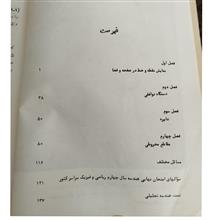 فهرست
فصل اول
نمایش نقطه و خط در صفحه و فضا ۱
فصل دوم
دستگاه توافقی ۳۸
فصل سوم
دایره ۵۰
فصل چهارم
مقاطع مخروطی ۸۰
مسائل مختلف ۱۱۶
سؤالهای امتحان نهایی هندسه سال چهارم ریاضی و فیزیک سراسر کشور ۱۲۱
تست هندسه تحلیلی ۱۳۷